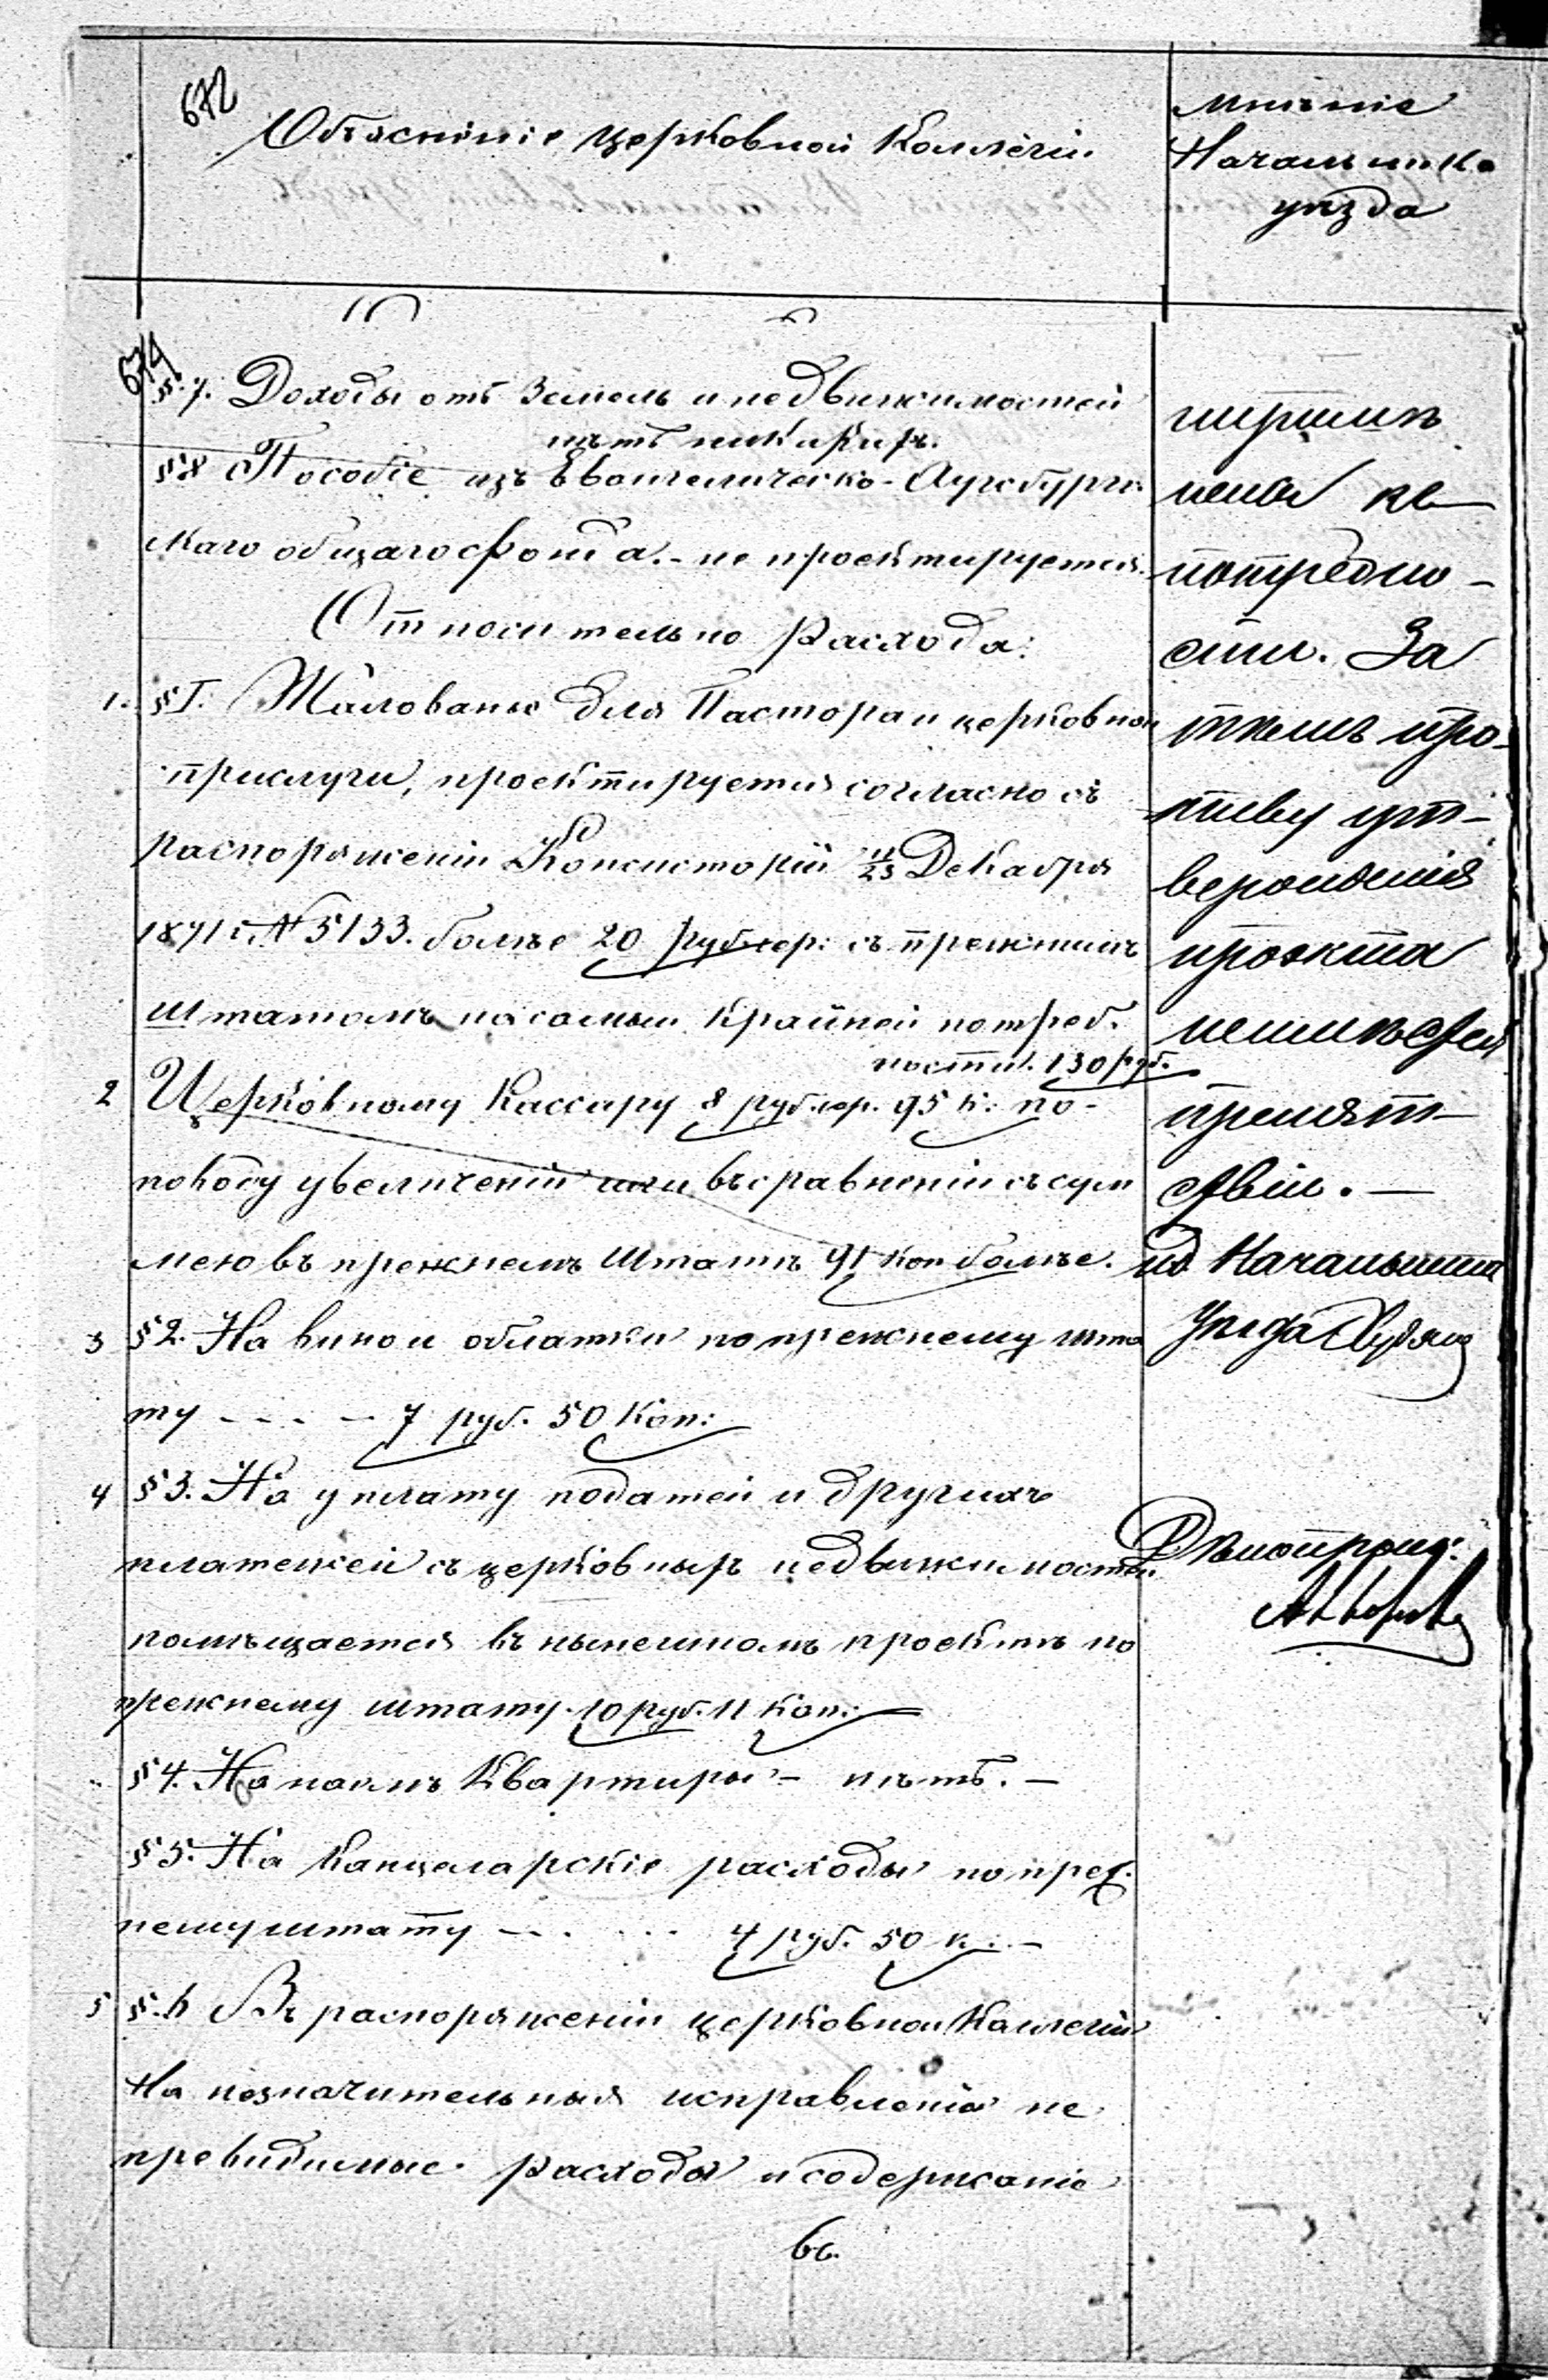 672
Объясненіе церковной Коллегіи
Мнѣніе
Начальника
уѣзда
674
§ 7. Доходы отъ Земель и недвижимостей
нѣтъ никакихъ.
§ 8 Пособіе изъ Евангелическо-Аугсбургс
каго общаго фонда. - не проектируется.
Относительно Расхода:
1. § I. Жалованье для Пастора и церковной
прислуги, проектируется согласно съ
распоряженіи Консисторіи 11/23 Декабря
1871 г. № 5133. болѣе 20 руб. сер: съ прежнимъ
штатомъ по самый крайней потреб.
ности. 130 руб.
2 Церковному Кассару 8 руб. сер. 95 к: по-
поводу увеличеній въ сравненіи съ сум
мею въ прежнемъ Штатѣ 91 коп болѣе.
3 § 2. На вино и облатки по прежнему шта
ту - - - - 7 руб. 50 Коп:
4 § 3. На уплату податей и другихъ
платежей съ церковныхъ недвижимостей
помѣщается въ нынешномъ проектѣ по
прежнему штату. 10 руб. 11 Коп:
§ 4. На наемъ Квартиры - нѣтъ. -
§ 5. На Канцеларскіе расходы по преж.
нему штату - . . . . 4 руб. 50 к: . -
5 §. 6 Въ распоряженіи церковной Коллегіи
На незначительныя исправленія не
превидимые Расходы и содержаніе
потребно-
сти. За
тѣмъ про-
тиву ут-
вержденія
проэкта
неимѣется
препят-
ствій. -
ид Начальника
Уѣзда
Дѣлопроиз: